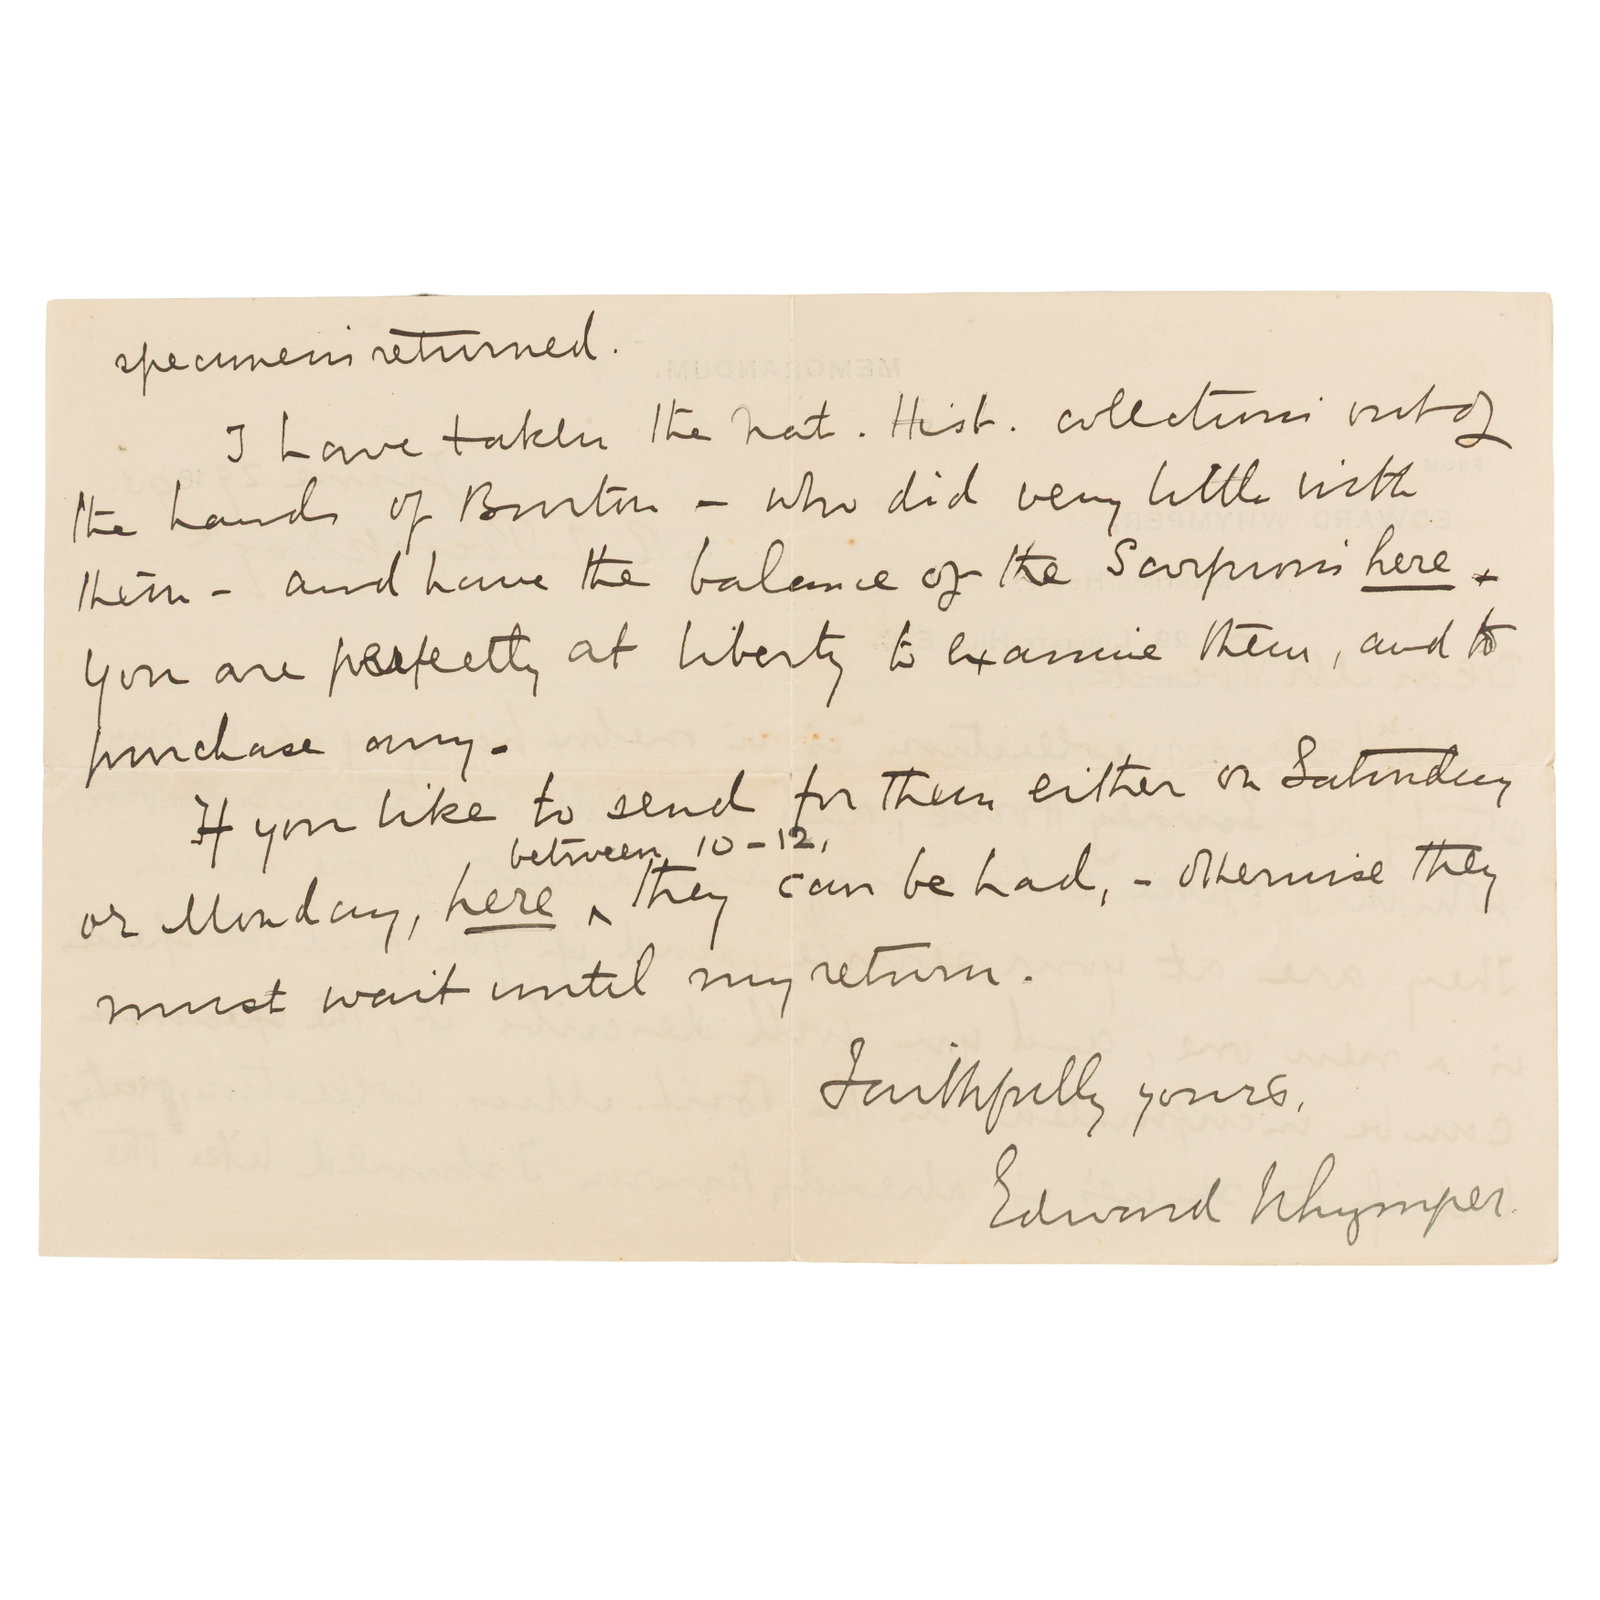 specimens returned.
I have taken the Nat. Hist. collections out of
the hands of Burton – who did very little with
them – and have the balance of the Scorpions here.
You are perfectly at liberty to examine them, and to
purchase any.
If you like to send for them either on Saturday
between 10–12,
or Monday, here ^ they can be had, – otherwise they
must wait until my return.
Faithfully yours,
Edward Whymper.
MEMORANDUM.
FROM
EDWARD WHYMPER